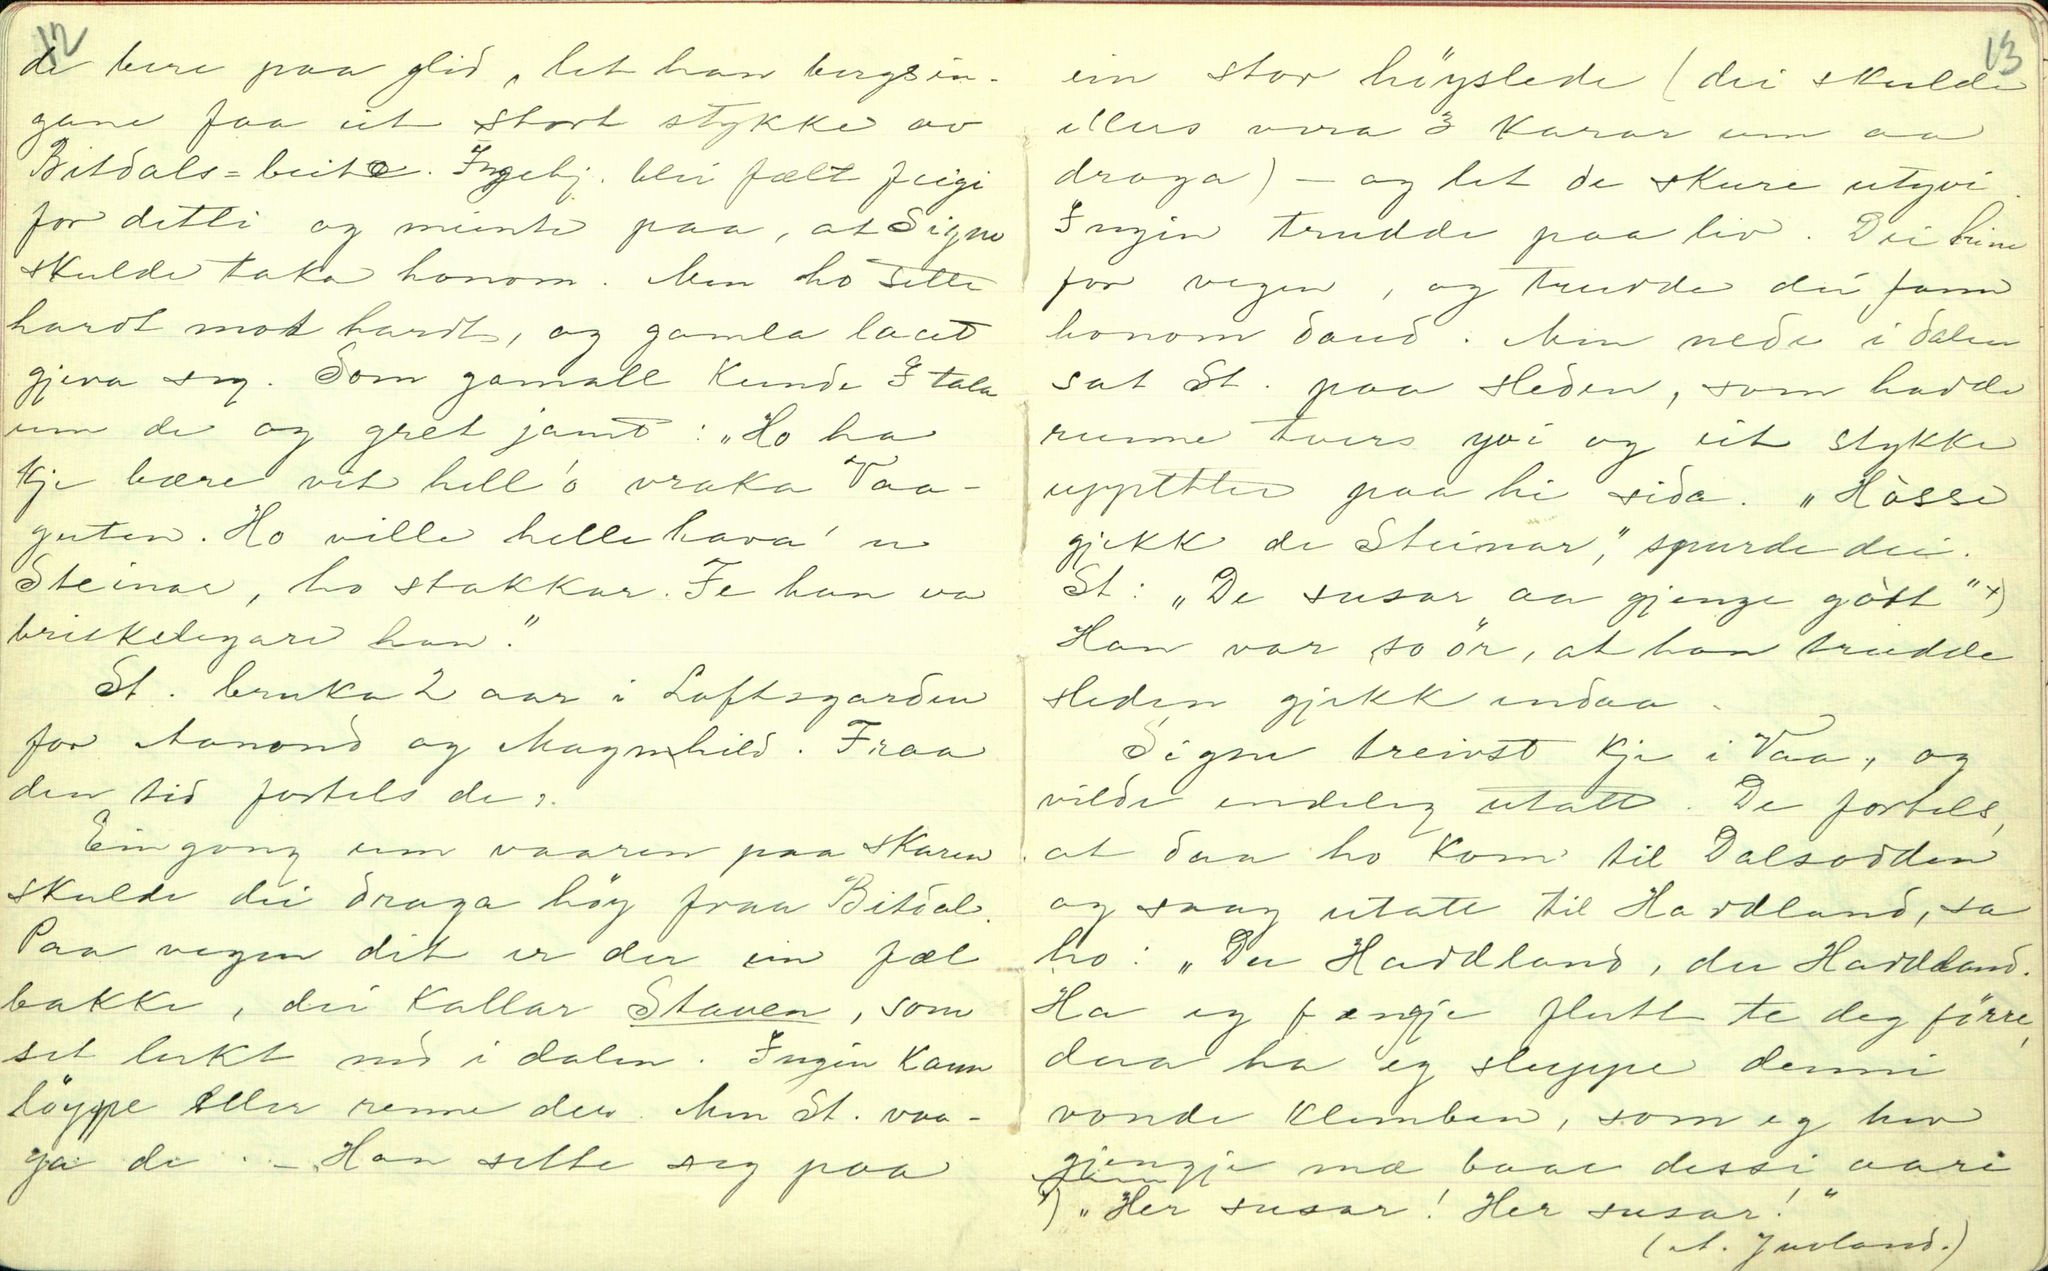 12
de bere paa glid, let han bergsin-
gane faa eit stort stykke av
Bitdals-beite. Ingebj. blei fælt feigi
for detti og meinte paa, at Signe
skulde taka honom. Men ho sette
hardt mot hardt, og gamla laut
gjeva seg. Som gamall kunde I tala
um de og gret jamt: "Ho ha
kje bære vit hell 'o vraka Vaa-
guten. Ho ville helle hava' n
Steinar, ho stakkar. Fe han va
briskelegare han."
St. bruka 2 aar i Loftsgarden
for Aanond og Magnhild. Fraa
den tid fortels de:
Ein gong um vaaren paa skaren
skulde dei draga höy fraa Bitdal.
Paa vegen dit er der ein fæl
bakke, dei kallar Staven, som
set lukt ned i dalen. Ingin kann
löyppe eller renne der. Men St. vaa-
ga de. - Han sette seg paa
13
ein stor höyslede (dei skulde
elles vera 3 karar um aa
draga) - og let de skure utyvi.
Ingin trudde paa liv. Dei hine
for vegen, og trudde dei fann
honom daud. Men nede i dalen
sat St. paa sleden, som hadde
runne tvers yvi og eit stykke
uppetter paa hi sida. "Hòsse
gjekk de Steinar," spurde dei.
St: "De susar aa gjenge gòtt" x)
Han var so ör, at han trudde
sleden gjekk endaa.
Signe treivst kje i Vaa, og
vilde endeleg utatt. De fortels,
at daa ho kom til Dalsodden
og saag utatt til Haddland, sa
ho: "Du Haddland, du Haddland.
Ha eg fengje flutt te deg förre,
daa ha eg sluppe denni
vonde klemben, som eg hev
gjengje mæ baae dessi aari
x) "Her susar! Her susar!"
(A. Juvland.)